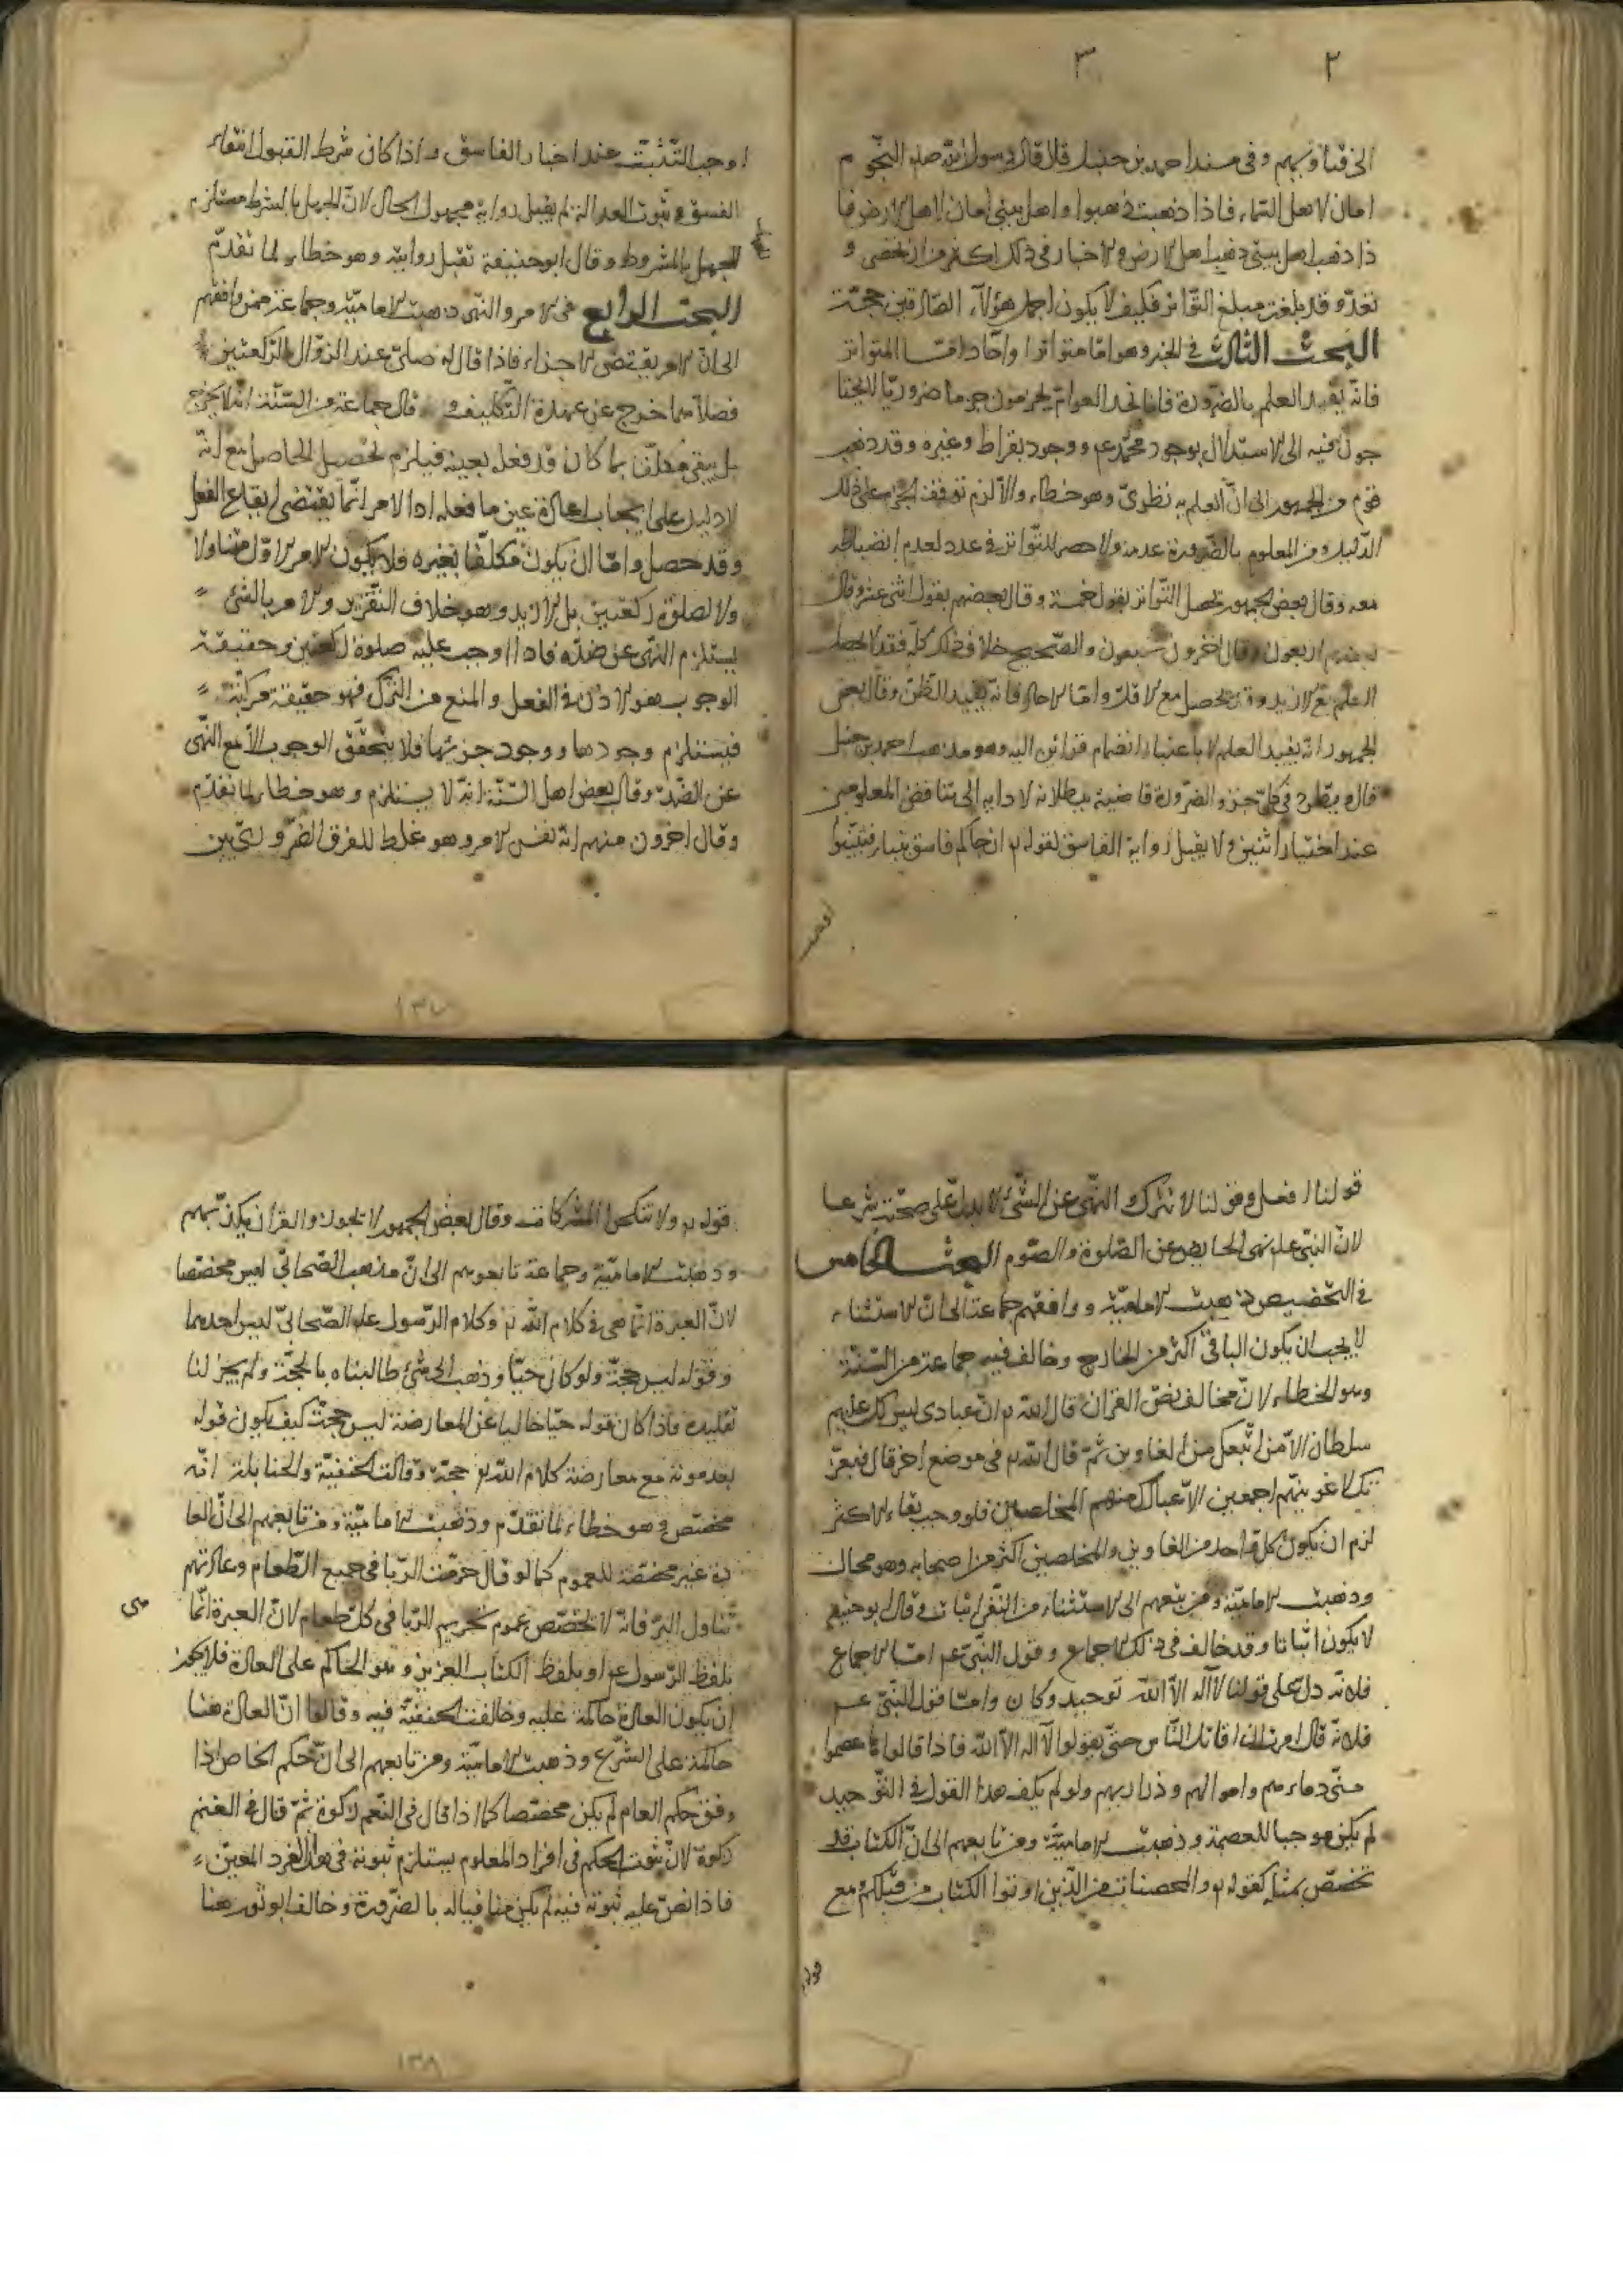 ٢
٣
الخ قتادتهم وفى مسند احمد بن حنبل قال قال رسول الله صلعم النجوم
امان لاهل السماء فاذا ذهبت ذهبوا واهل بيتى امان لاهل الارض فا
ذا ذهب اهل بيتى ذهب اهل الارض والاخبار فى ذلك اكثر من ان تحصى و
تعدّ وقد بلغت مبلغ التواتر فكيف لا يكون اجماع هؤلاء الصادقين حجّة
البحث الثالث فى الخبر وهو امّا متواترا وآحاد امّا المتواتر
فانّه يفيد العلم بالضرورة فانا نجد العوام يجزمون جزما ضروريّا لا يحتا
جون فيه الى الاستدلال بوجود محمّد عم ووجود بقراط وغيره وقد ذهب
قوم من الجمهور الى ان العلم به نظرىّ وهو خطاء والّا لزم توقف الجزم على ذلك
الدّليل ومن المعلوم بالضّرورة عدمه ولا حصر للتّواتر فى عدد لعدم انضباطه
معه وقال بعض الجمهور يحصل التّواتر بقول خمسة وقال بعضهم بقول اثنى عشر وقال
بعضهم اربعون وقال اخرون سبعون والصّحيح خلاف ذلك كلّه فقد لا يحصل
العلم مع الازيد وقد يحصل مع الاقلّ وامّا الاحاد فانّه يفيد الظنّ وقال بعض
الجمهور انّه يفيد العلم لا باعتبار انضمام قرائن اليه وهو مذهب احمد بن حنبل
قال و يطّرد فى كلّ خبر والضّرورة قاضية ببطلانه لادايه الى تناقض المعلومين
عند اخبار اثنين ولا يقبل رواية الفاسق لقوله تع ان جاءكم فاسق بنباء فتبيّنوا
اوجب
اوجب التّثبّت عند اخبار الفاسق واذا كان شرط القبول انتفاء
الفسق و ثبوت العدالة لم يقبل رواية مجهول الحال لانّ الجهل بالشرط مستلزم
للجهل بالمشروط وقال ابو حنيفة تقبل روايته وهو خطاء لما تقدّم
البحث الرابع فى الامر والنّهى ذهبت الاماميّة وجماعة ممن وافقهم
الى انّ الامر يقتضى الاجزاء فاذا قال له صلّى عند الزوّال الرّكعتين
فصلاهما خرج عن عهدة التّكليف و قال جماعة من السّنّة انّه لا يخرج
بل يبقى مكلّفا بما كان قد فعل بعينه فيلزم تحصيل الحاصل مع انّه
لا دليل على ايجاب اعادة عين ما فعله اذ الامر انّما يقتضى ايقاع الفعل
وقد حصل وامّا ان يكون مكلّفا بغيره فلا يكون الامر الاوّل متناولا
ولا لصلوة ركعتين بل لازيد وهو خلاف التّقرير والامر بالشئ
يستلزم النّهى عن ضدّه فاذا اوجب عليه صلوة ركعتين وحقيقة
الوجوب هو الاذن فى الفعل والمنع من التّرك فهو حقيقة مركّبة
فيستلزم وجودها ووجود جزئيها فلا يتحقّق الوجوب الّا مع النّهى
عن الضّدّ وقال بعض اهل السّنّة انّه لا يستلزم وهو خطاء لما تقدّم
وقال اخرون منهم انّه نفس الامر وهو غلط للفرق الضّرورىّ بين
١٣٧
قولنا افعل وقولنا لا تترك والنّهى عن الشّئ لا يدلّ على صحّته شرعا
لانّ النبىّ عليه نهى الحايض عن الصّلوة والصّوم البحث الخامس
فى التّخصيص ذهبت الاماميّة ووافقهم جماعة الى انّ الاستثناء
لا يجب ان يكون الباقى اكثر من الخارج وخالف فيه جماعة من السّنّة
وهو الخطاء لانّ مخالف نصّ القران قال الله تع انّ عبادى ليس لك عليهم
سلطان الّا من اتّبعك من الغاوين ثمّ قال الله تع فى موضع اخر قال فبعزّ
تك لاغوينّهم اجمعين الّا عبادك منهم المخلصين فلو وجب بقاء الاكثر
لزم ان يكون كلّ واحد من الغاوين والمخلصين اكثر من اصحابه وهو محال
وذهبت الاماميّة ومن يتبعهم الى الاستثناء من النّفى اثبات وقال ابو حنيفة
لا يكون اثباتا وقد خالف فى ذلك الاجماع وقول النّبىّ عم امّا الاجماع
فلانّه دلّ على قولنا لا آله الّا الله توحيد وكان وامّا قول النّبىّ عم
فلانّه قال امرت ان اقاتل النّاس حتّى يقولوا لا آله الّا الله فاذا قالوا ها عصموا
منّى دماءهم واموالهم وذراريهم ولو لم يكف هذا القول فى التّوحيد
لم يكن موجبا للعصمة وذهبت الاماميّة ومن تابعهم الى انّ الكتاب قد
تخصّص بمثله كقوله تع والمحصنات من الّذين اوتوا الكتاب من قبلكم ومع
قوله
قوله تع ولا تنكحوا المشركات وقال بعض الجمهور لا يجوز والقران يكذّبهم
وذهبت الاماميّة وجماعة تابعوهم الى انّ مذهب الصّحابىّ ليس مخصّصا
لانّ العبرة انّما هى فى كلام الله تع وكلام الرّسول عليه الصّحابىّ ليس احدهما
وقوله ليس حجّة ولو كان حيّا وذهب الى شئ طالبناه بالحجّة ولم يجز لنا
تقليده فاذا كان قوله حيّا خاليا عن المعارضة ليس حجّة كيف يكون قوله
بعد موته مع معارضة كلام الله تع حجة وقالت الحنفيّة والحنابلة انّه
مخصّص وهو خطاء لما تقدّم وذهبت الاماميّة ومن تابعهم الى انّ العا
دة غير مخصّصة للعموم كما لو قال حرّمت الرّبا فى جميع الطّعام وعادتهم
تناول البرّ فانّه لا تخصّص عموم تحريم الرّبا فى كلّ طعام لانّ العبرة انّما
هى
بلفظ الرّسول عم او بلفظ الكتاب العزيز وهو الحاكم على العادة فلا يجوز
ان يكون العادة حاكمة عليه وخالفت الحنفيّة فيه وقالوا انّ العادة هنا
حاكمة على الشّرع وذهبت الاماميّة ومن تابعهم الى انّ حكم الخاص اذا
وفق حكم العام لم يكن مخصّصا كما اذا قال فى النّعم زكوة ثمّ قال فى الغنم
زكوة لانّ ثبوت الحكم فى افراد المعلوم يستلزم ثبوته فى هذا الفرد المعيّن
فاذا نصّ عليه ثبوته فيه لم يكن منافيا له بالضّرورة وخالف ابو ثور هنا
١٣٨